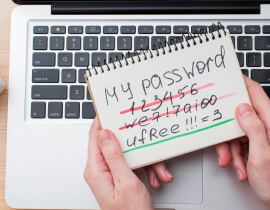 MY PASSWORD
123456
we?!7a;00
ufree!!!=3